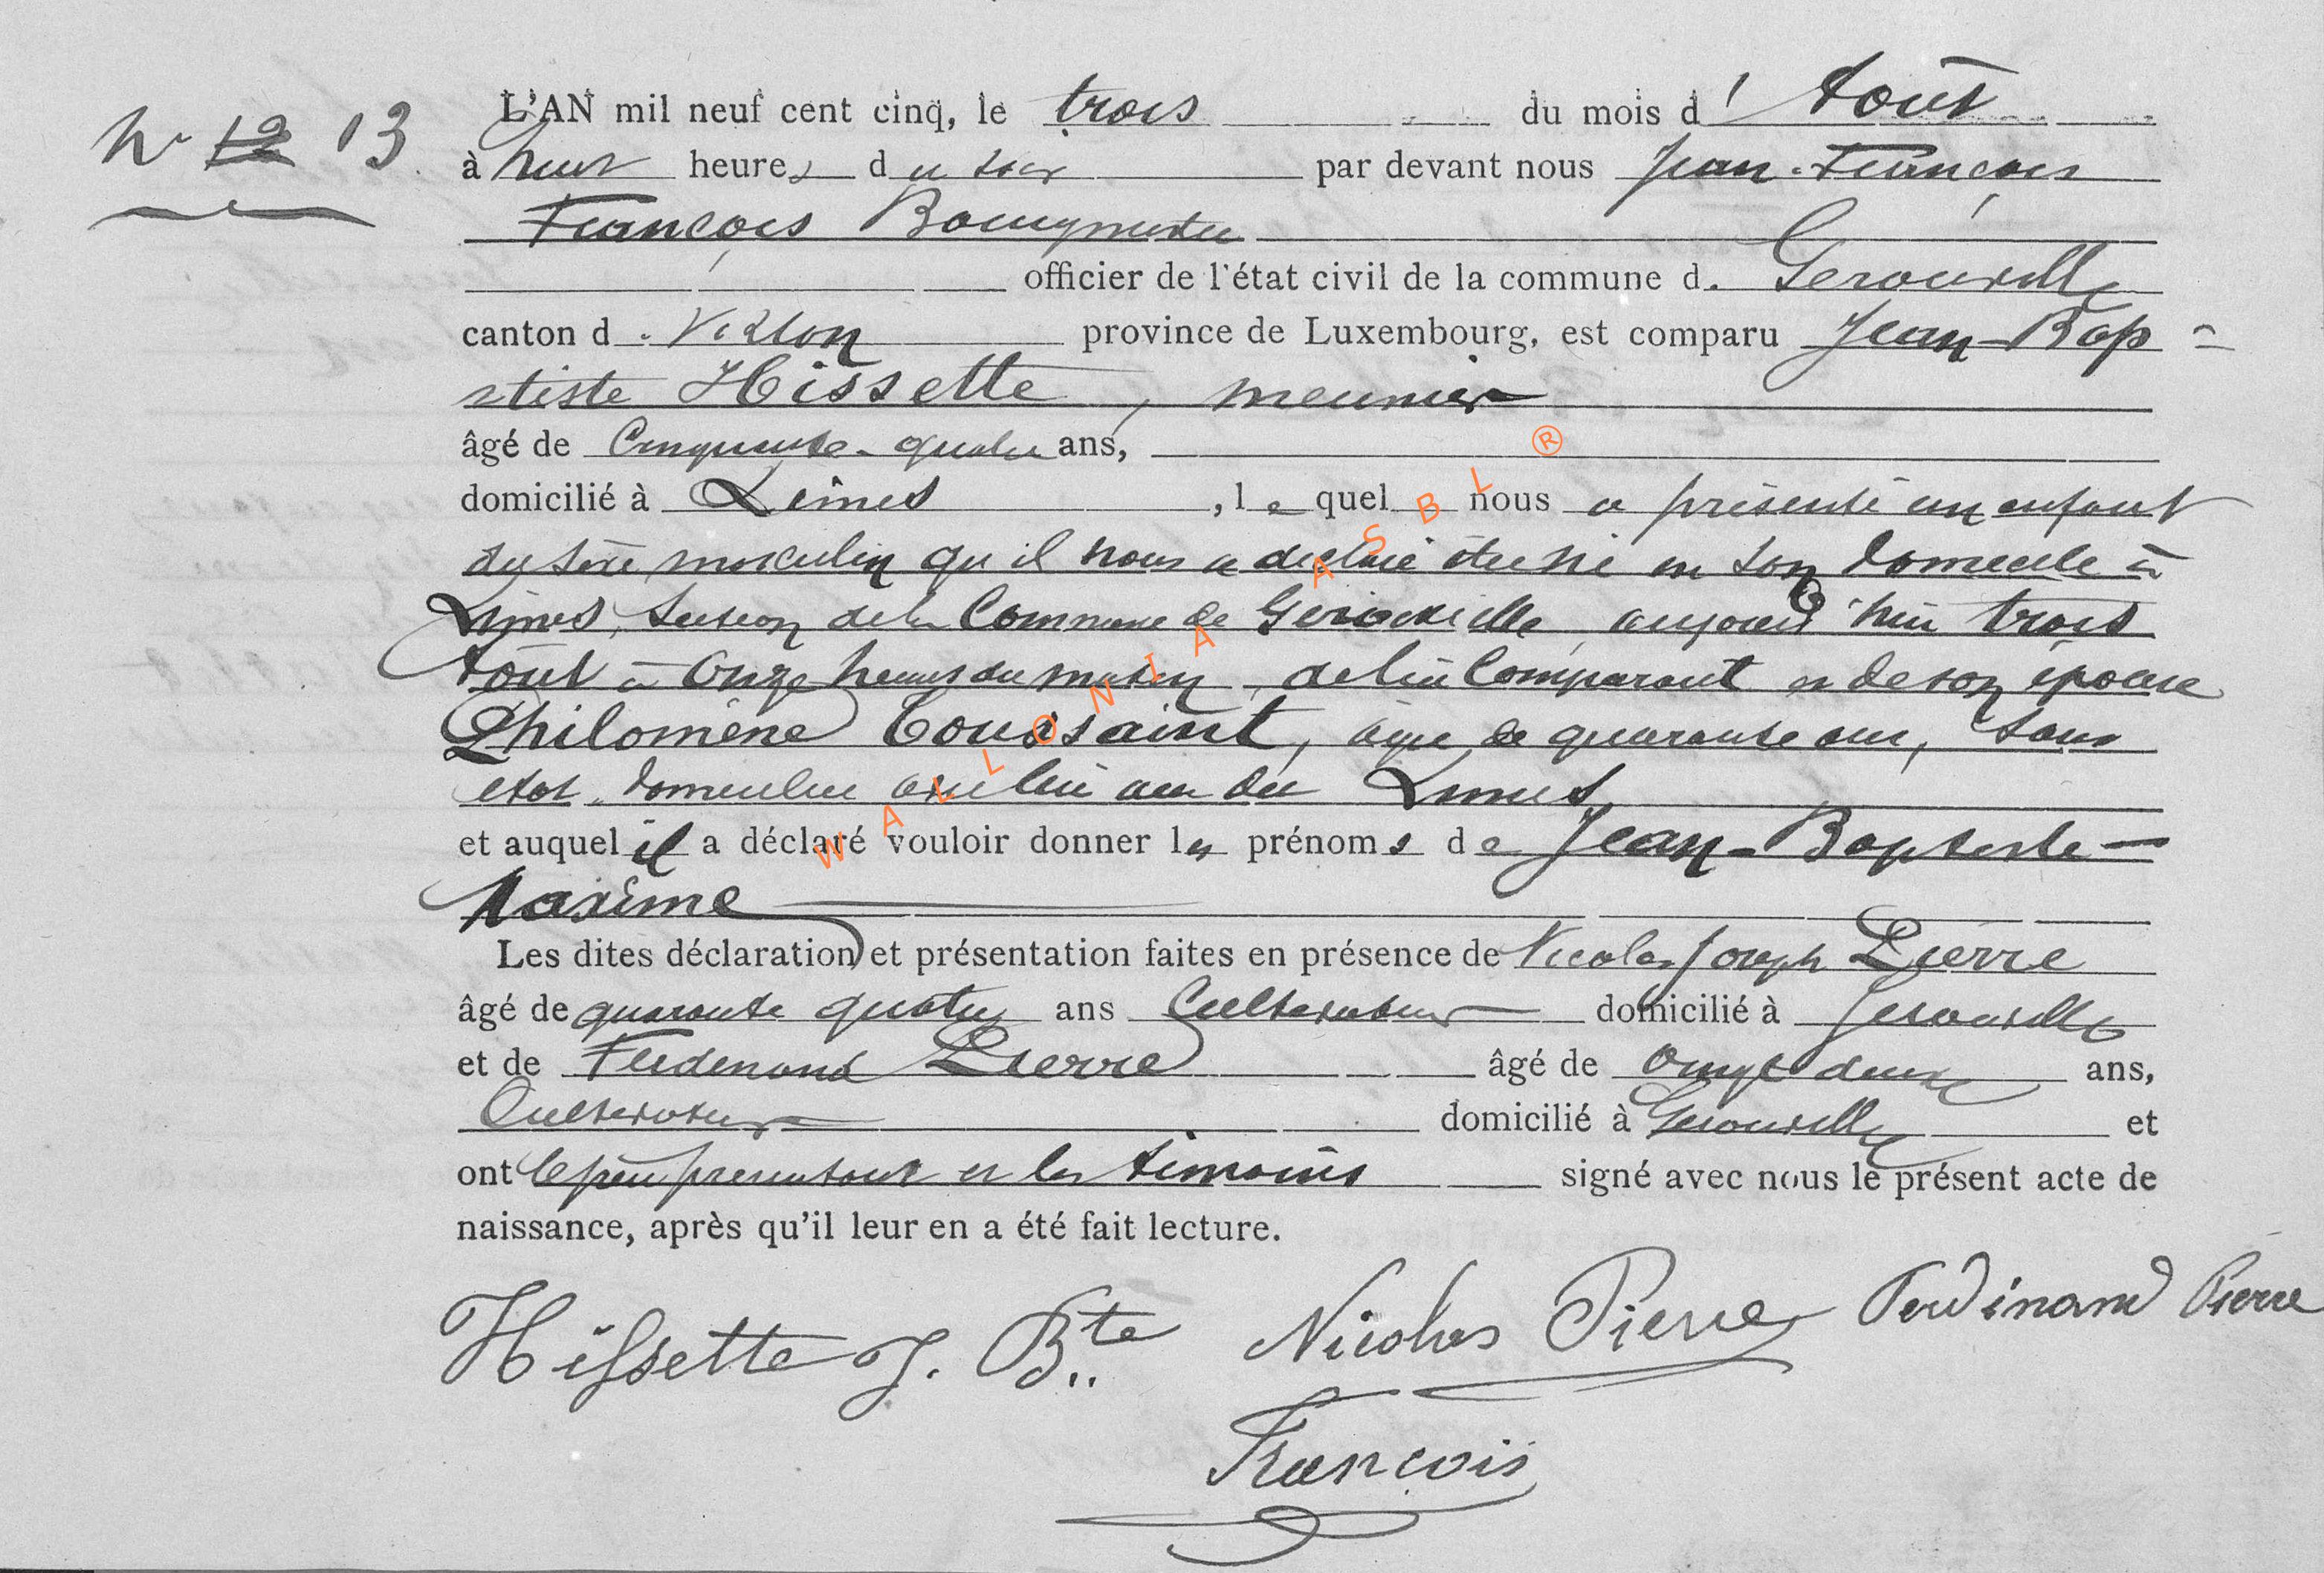 N° 12 13
L'AN mil neuf cent cinq, le trois du mois d' Août
à huit heures du soir par devant nous Jean-François
François Bourgmestre
officier de l'état civil de la commune d. Gerouville
canton d. Virton province de Luxembourg, est comparu Jean-Bap-
tiste Hissette, meunier
âgé de Cinquante-quatre ans,
domicilié à Limes, lequel nous a présenté un enfant
du sexe masculin qu'il nous a déclaré être né en son domicile à
Limes, Section de la Commune de Gerouville, aujourd'hui trois
Août à Onze heures du matin, de lui Comparant et de son épouse
Philomène Toussaint, âgée de quarante ans, sans
état, domiciliée avec lui au dit Limes,
et auquel il a déclaré vouloir donner les prénoms de Jean-Baptiste-
Maxime
Les dites déclaration et présentation faites en présence de Nicolas Joseph Pierre
âgé de quarante quatre ans Cultivateur domicilié à Gerouville
et de Ferdinand Pierre âgé de vingt deux ans,
Cultivateur domicilié à Gerouville et
ont le père présentant et les témoins signé avec nous le présent acte de
naissance, après qu'il leur en a été fait lecture.
Hissette J. Bte Nicolas Pierre Ferdinand Pierre
François
WALLONIA ASBL ®